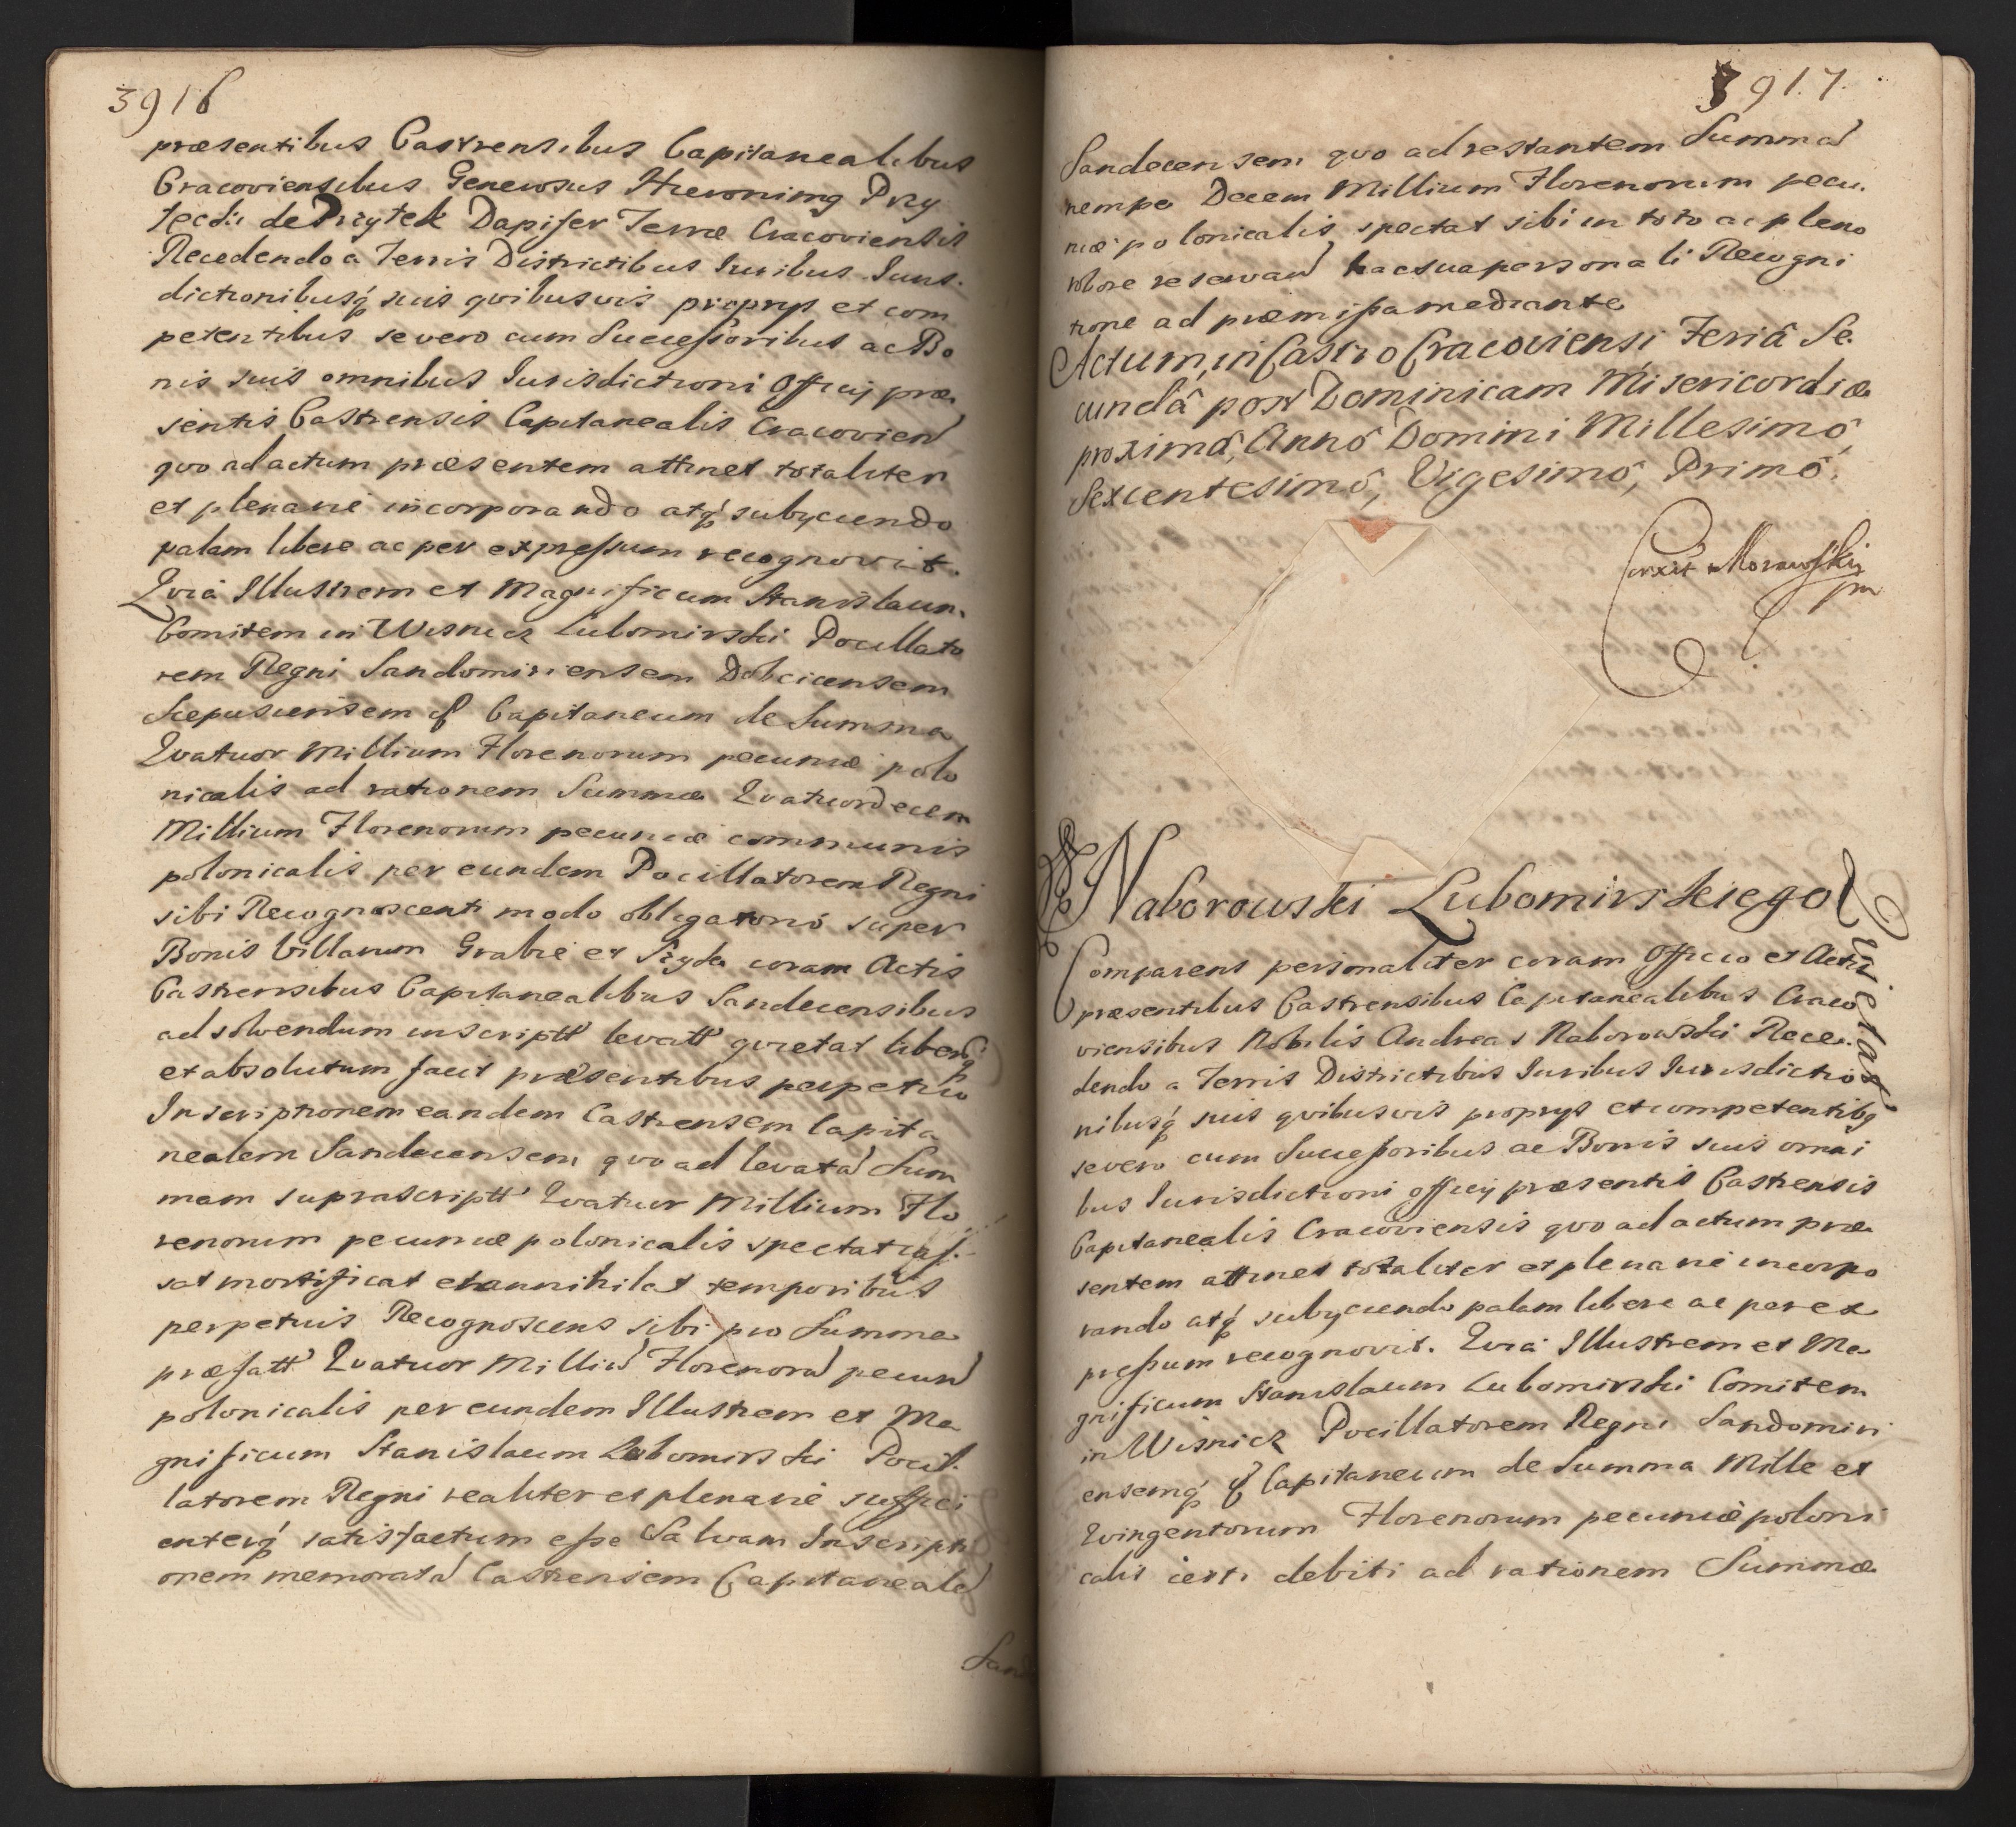 3916
præsentibus Castrensibus Capitanealibus
Cracoviensibus Generosus Hieronimq Przy
łęcki de Przytek Dapifer Terræ Cracoviensis
Recedendo a Terris Districtibus Iuribus Iuris.
dictionibusq́ suis qvibusvis proprys et com
petentibus se vero cum Successoribus ac Bo
nis suis omnibus Iurisdictioni Officij præ
sentis Castrensis Capitanealis Cracovien
qvo ad actum præsentem attinet totaliter
et plenarie incorporando atq́ subyciendo
palam libere ac per expressum recognovit.
Qvia Illustrem et Magnificum Stanislaum
Comitem in Wisnicz Lubomirski Pocillato
rem Regni Sandomiriensem Dobcicensem
Scepusiensem & Capitaneum de Summa
Qvatuor Millium Florenorum pecuniæ polo
nicalis ad rationem Summæ Qvatuordecem
Millium Florenorum pecuniæ communis
polonicalis per eundem Pocillatorem Regni
sibi Recognoscenti modo obligatorió super
Bonis Villarum Grabie et coram Actis
Castrensibus Capitanealibus Sandecensibus
ad solvendum inscriptt levatt qvietat liberq
et absolutum facit præsentibus perpetuo
Inscriptionem eandem Castrensem Capita
nealem Sandecensem qvo ad levatad Sum
mam suprascriptt Qvatuor Millium Flo
renorum pecuniæ polonicalis spectat cas.
sat mortificat et annihilat temporibus
perpetuis Recognoscens sibi pro Summa
præfatt Qvatuor Millid Florenord pecund
polonicalis per eundem Illustrem et Ma
gnificum Stanislaum Lubomirski Pocil.
latorem Regni realiter et plenarie suffici
enterq́ satisfactum esse Salvam Inscripti
onem memoratd Castrensem Capitaneald
Sand
3917.
Sandecensem qvo ad restantem Summad
nempe Decem Millium Florenorum pecu.
niæ polonicalis spectat sibi in toto ac pleno
robore reservand hac sua personali Recogni
tione ad præmissa mediante
Actum, in Castro Cracoviensi Feriâ Se.
cundâ post Dominicam Misericordiæ
proximâ, Annô Domini Millesimô,
Sexcentesimô, Vigesimô, Primô.
Corxit Morawski
pm
Naborowski Lubomirskiego Qvietat
Comparens personaliter coram Officio et Actis
præsentibus Castrensibus Capitanealibus Craco
viensibus Nobilis Andreas Naborowski Rece.
dendo a Terris Districtibus Iuribus Iurisdictio
nibusq́ suis qvibusvis proprys et competentibq
se vero cum Successoribus ac Bonis suis omni
bus Iurisdictioni officij præsentis Castrensis
Capitanealis Cracoviensis qvo ad actum præ
sentem attinet totaliter et plenarie incorpo
rando atq́ subyciendo palam libere ac per ex
pressum recognovit. Qvia Illustrem et Ma
gnificum Stanislaum Lubomirski Comitem
in Wisnicz Pocillatorem Regni Sandomiri
ensemq́ & Capitaneum de Summa Mille et
Qvingentorum Florenorum pecuniæ poloni
calis certi debiti ad rationem Summæ